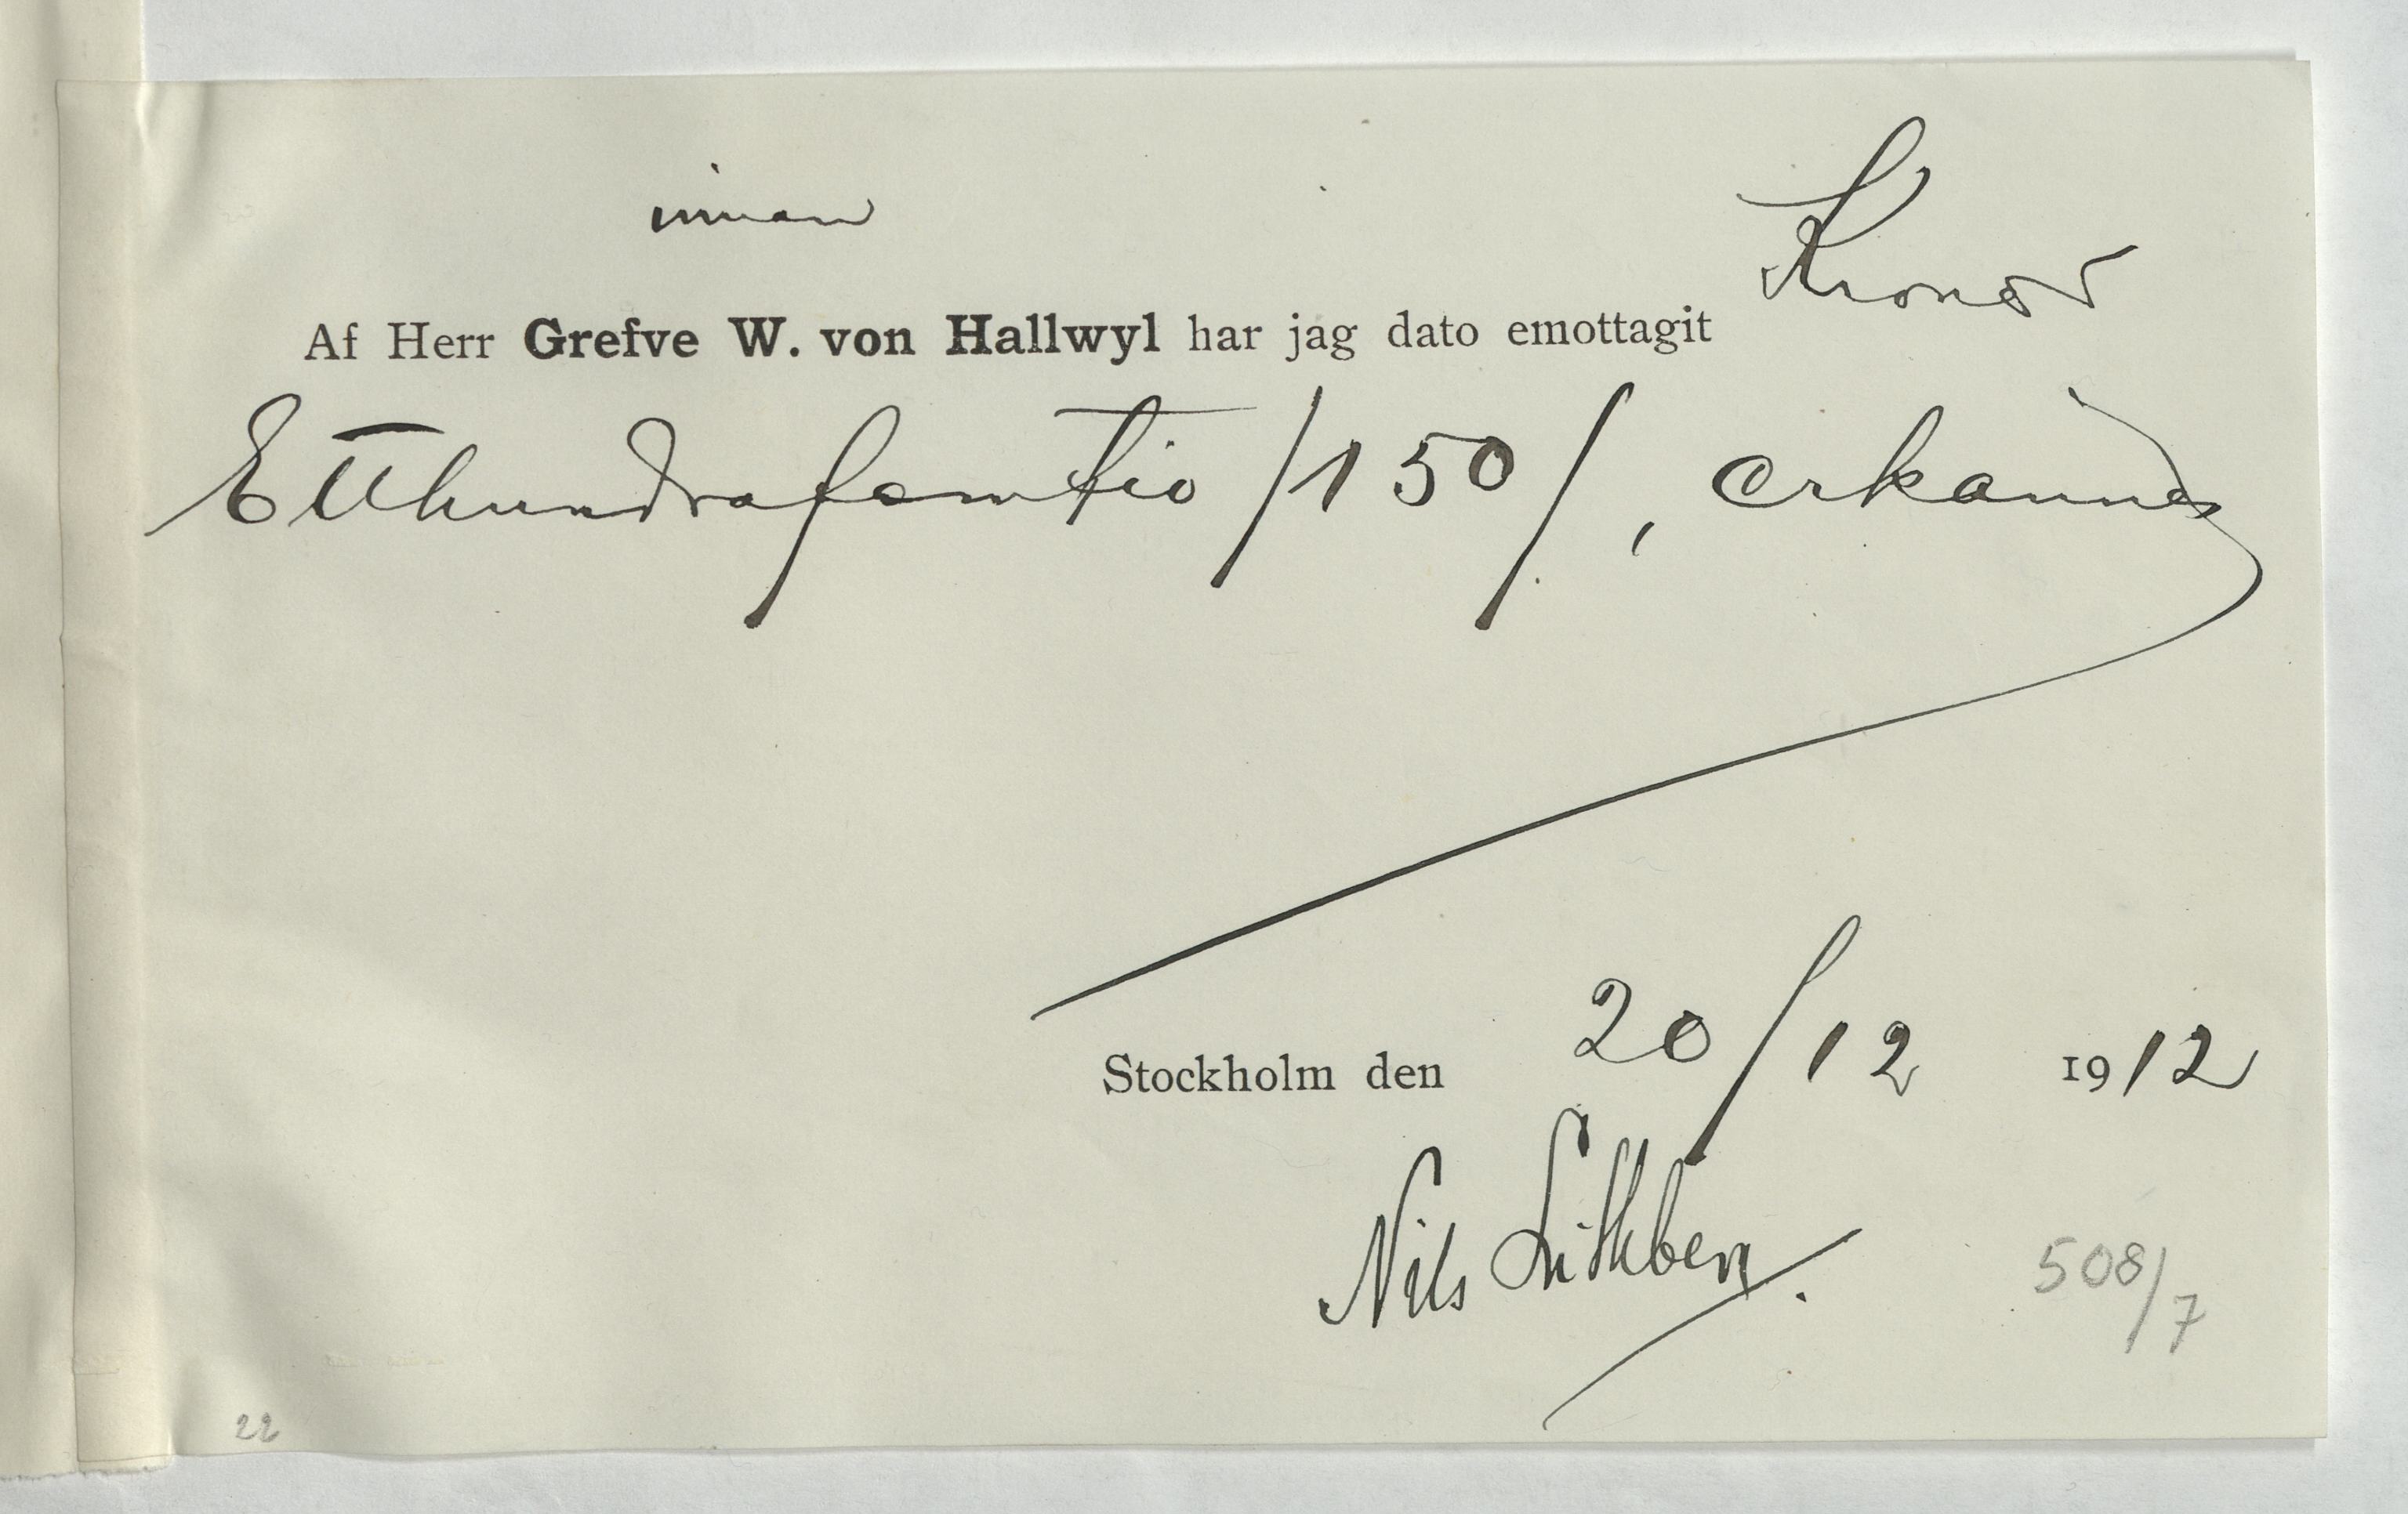 Kronor
Af Herr Grefve W. von Hallwyl har jag dato emottagit
Etthundrafemtio /150/, erkännes
Stockholm den 20/12 1912
Nils Lithberg.
508/7
22